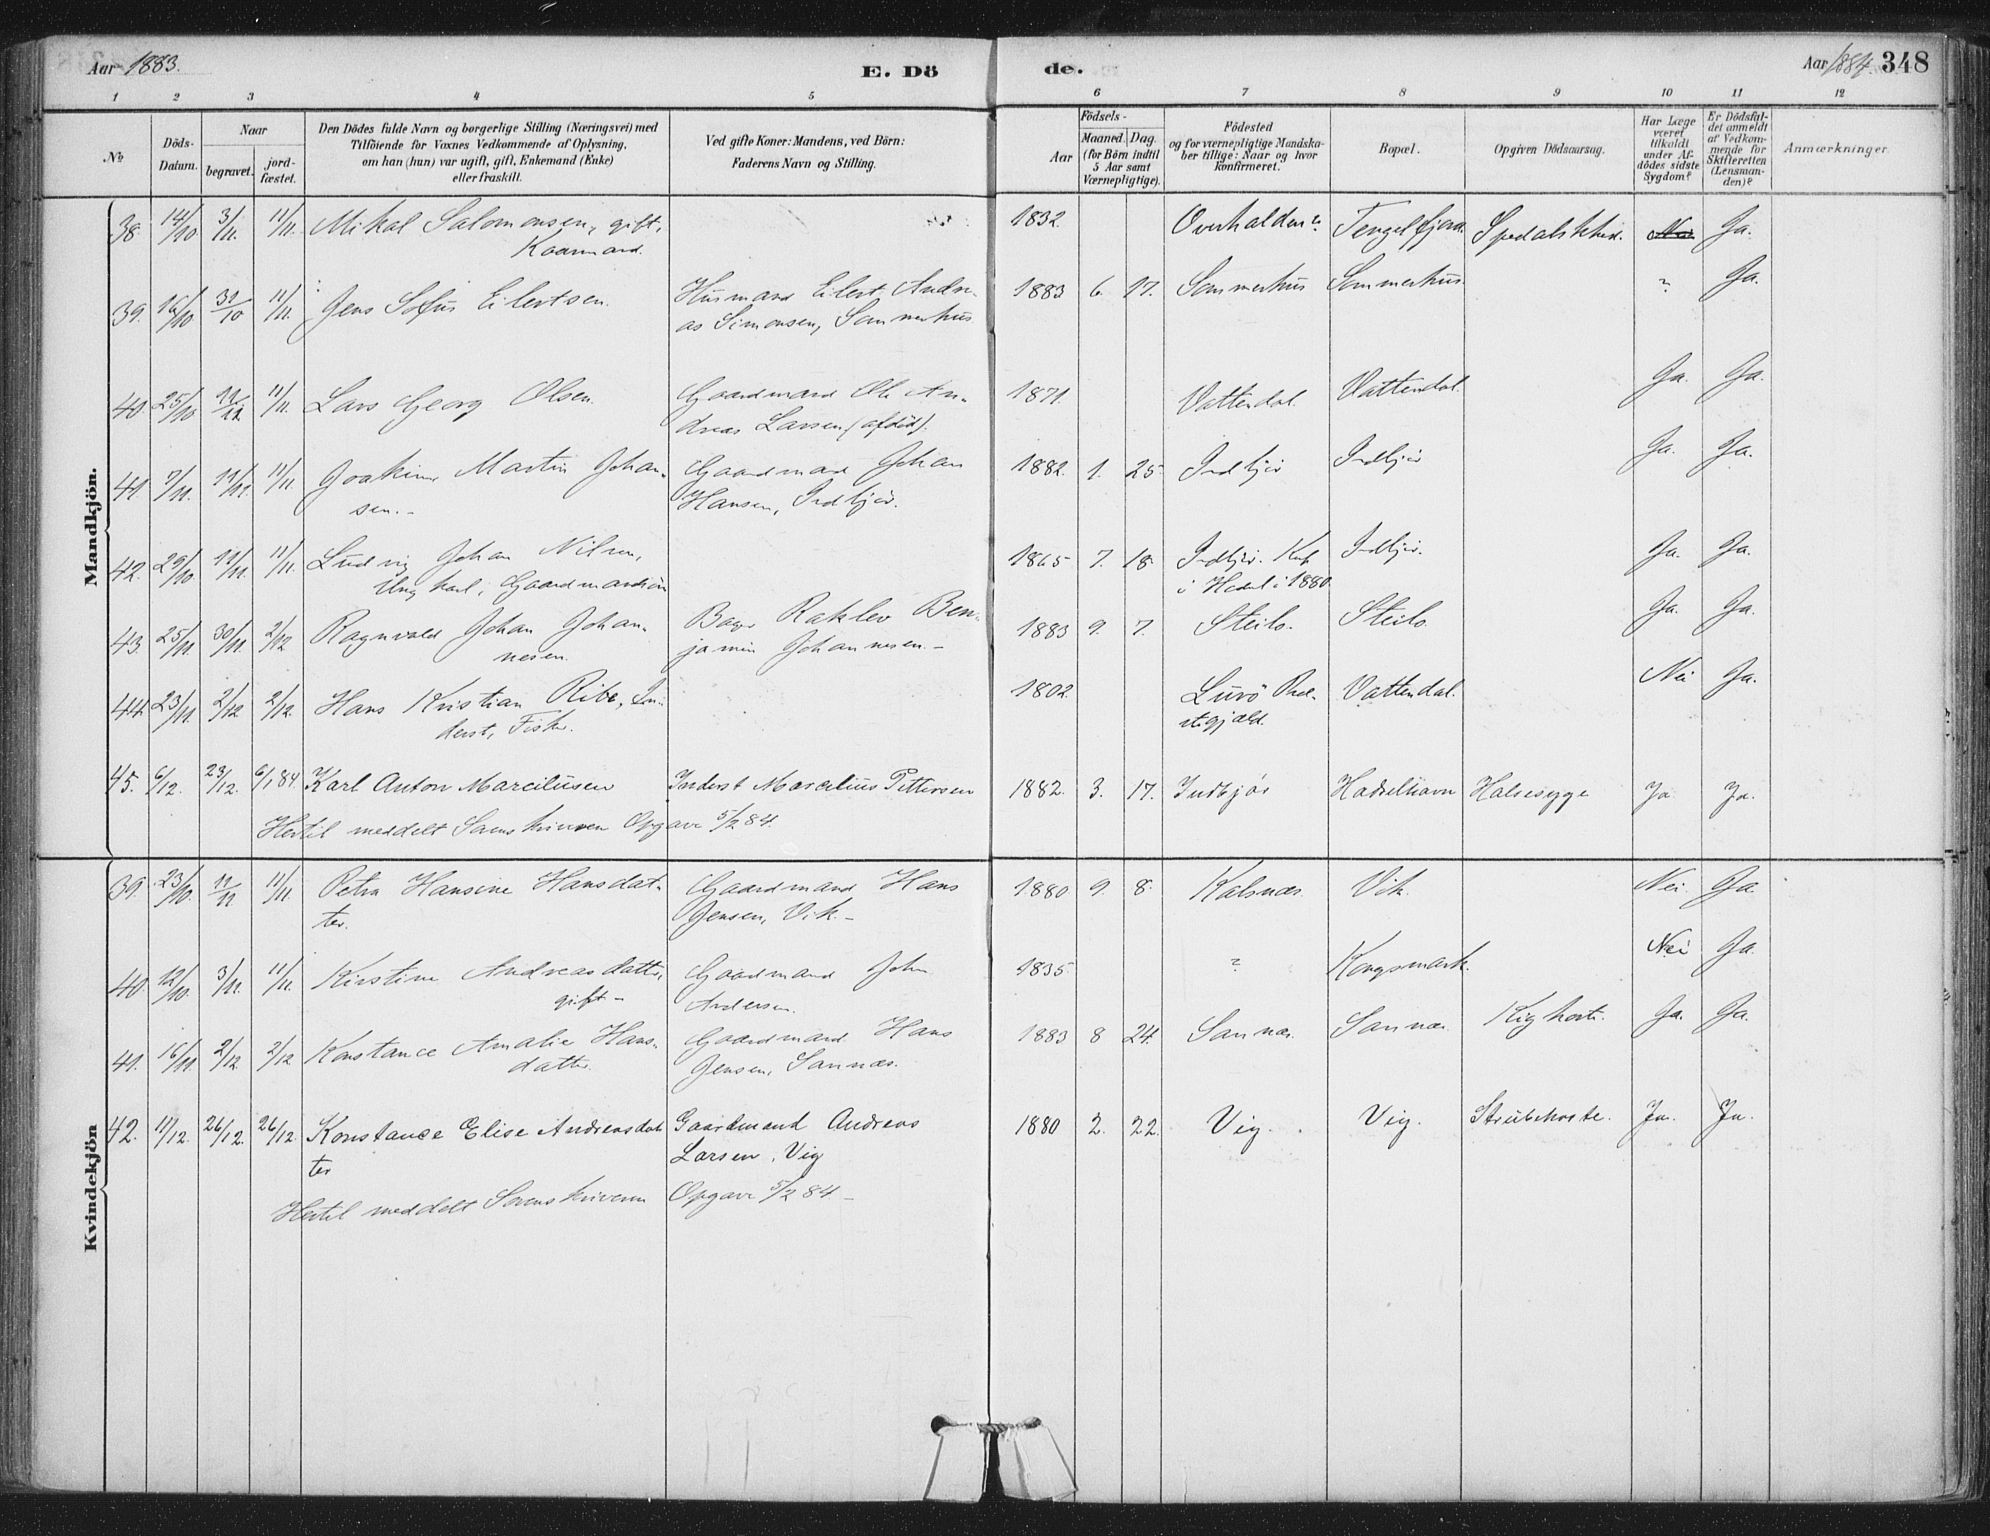 Aar 1883.
E. Dö
de.
Aar 1884. 348
1 2 3 4 5 6 7 8 9 10 11 12
No
Döds-Datum.
Naar
begravet.
jord-fæstet.
Den Dödes fulde Navn og borgerlige Stilling (Næringsvei) med
Tilföiende for Voxnes Vedkommende af Oplysning,
om han (hun) var ugift, gift, Enkemand (Enke)
eller fraskilt.
Ved gifte Koner: Mandens, ved Börn:
Faderens Navn og Stilling.
Födsels-
Aar
Maaned. Dag.
(for Börn indtil
5 Aar samt
Værnepligtige).
Födested
og for værnepligtige Mandska-
ber tillige: Naar og hvor
konfirmeret.
Bopæl.
Opgiven Dödsaarsag.
Har Læge
været
tilkaldt
under Af-
dödes sidste
Sygdom?
Er Dödsfal-
det anmeldt
af Vedkom-
mende for
Skifteretten
(Lensman-
den)?
Anmærkninger.
Mandkjön.
38 14/10. 3/11. 11/11. Mikal Salomonsen, gift, 1832. Overhalden? Tengelfjord. Spedalskhed. Nei Ja.
Kaarmand.
39. 16/10 31/10 11/11. Jens Sofus Eilertsen. Husmand Eilert Andre- 1883 6. 17. Sommerhus Sommerhus. ? Ja.
as Simonsen, Sommerhus
40. 25/10. 11/11 11/11. Lars Georg Olsen. Gaardmand Ole An- 1871. Vattendal. Vattendal. Ja. Ja.
dreas Larsen (afdöd).
41. 7/11. 11/11. 11/11. Joakim Martin Johan- Gaardmand Johan 1882. 1. 25. Indbjör Indbjör Ja. Ja.
sen. - Hansen, Indbjör.
42. 29/10. 11/11. 11/11. Ludvig Johan Nilsen, 1865 7. 18. Indbjör. Knf. Indbjör. Ja. Ja.
Ungkarl, Gaardmandssön i Hadsel i 1880.
43. 25/11. 30/11. 2/12 Ragnvald Johan Johan- Bager Raklev Ben- 1883 9. 7. Steilo. Steilo. Ja. Ja.
nesen. jamin Johannesen. -
44. 23/11. 2/12 2/12. Hans Kristian Ribe, In- 1802. Lurö Præ- Vattendal. Nei Ja.
derst, Fisker. stegjæld.
45. 6/12. 23/12. 6/1 84 Karl Anton Marciliusen Inderst Marcilius Pettersen 1882. 3. 17. Indbjör Hadselhavn Halssyge Ja Ja.
Hertil meddelt Sorenskriveren Opgave 5/2 84.
Kvindekjön
39. 23/10. 11/11 11/11. Petra Hansine Hansdat- Gaardmand Hans 1880 9. 8. Kalsnæs. Vik. Nei. Ja.
ter. Jensen, Vik. -
40. 12/10. 3/11. 11/11. Kirstine Andreasdatter, Gaardmand John 1835. ? Kongsmark. Nei Ja.
gift - Andersen.
41. 16/11. 2/12 2/12 Konstance Amalie Hans- Gaardmand Hans 1883 8 24. Sannæs. Sannæs. Kighoste. Ja. Ja.
datter. Jensen, Sannæs.
42. 11/12. 26/12. 26/12. Konstance Elise Andreasdat- Gaardmand Andreas 1880 2. 22. Vig. Vig. Strubehoste. Ja. Ja.
ter Larsen, Vig
Hertil meddelt Sorenskriveren Opgave 5/2 84 -